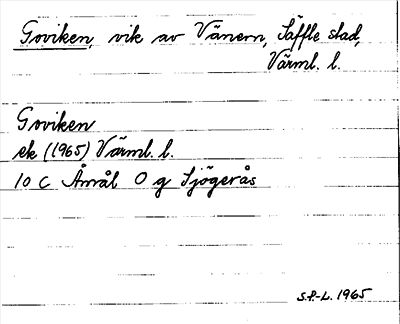 Goviken, vik av Vänern, Säffle stad,
Värml. l.
Goviken
ek (1965) Värml. l.
10 C Åmål O g Sjögerås
S.P-L. 1965